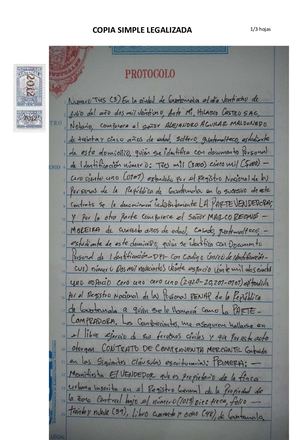 COPIA SIMPLE LEGALIZADA
1/3 hojas
2012
PROTOCOLO
Número Tres (3) En la ciudad de Guatemala el día veintiocho de
julio del año dos mil veintiuno, Ante Mí,
Notario, comparece el señor ALEJANDRO AGUILAR MALDONADO
de treinta y cinco años de edad, soltero, guatemalteco, estudiante
de este domicilio, quien se identifica con documento Personal
de Identificación número: Tres mil (3000) cinco mil (5000)
ciento uno (0101) extendido por el Registro Nacional de las
Personas de la República de Guatemala en lo sucesivo de este
contrato se le denominará indistintamente LA PARTE VENDEDORA;
y Por la otra parte comparece el señor MARCO
MOREIRA de cuarenta años de edad, casado, guatemalteco,
estudiante de este domicilio, quien se identifica con Documento
Personal de Identificación -DPI- con Código Único de Identificación
por el Registro Nacional de las Personas RENAP de la República
de Guatemala a quien se le llamará como la PARTE
COMPRADORA. Los Comparecientes, me aseguran hallarse en
el libre ejercicio de sus derechos civiles y que Por este acto
otorgan CONTRATO DE COMPRAVENTA MERCANTIL Contenido
en las siguientes cláusulas escriturarias: PRIMERA:
Manifiesta EL VENDEDOR que es propietario de la finca
urbana inscrita en el Registro General de la Propiedad de
la Zona Central bajo el número (1013) diez trece, folio
treinta y nueve (39), libro cuarenta y ocho (48) de Guatemala